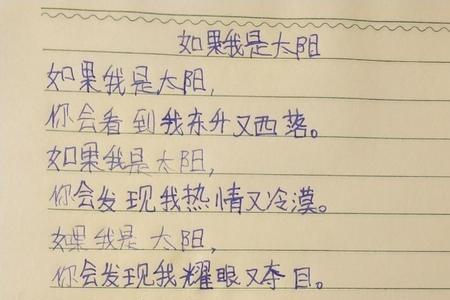 如果我是太阳
如果我是太阳,
你会看到我东升又西落。
如果我是太阳,
你会发现我热情又冷漠。
如果我是太阳,
你会发现我耀眼又夺目。